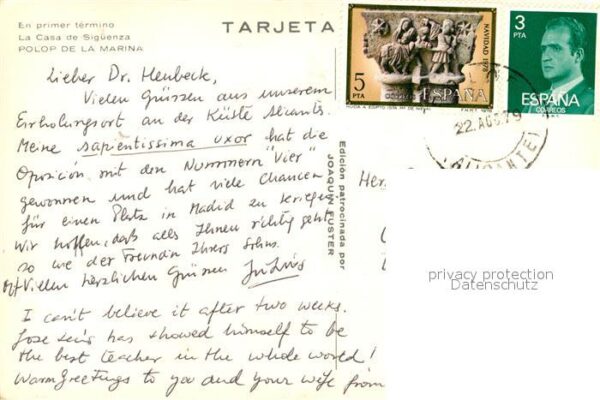 En primer término
La Casa de Sigüenza
POLOP DE LA MARINA
TARJETA
Lieber Dr. Heubeck,
Vielen Grüssen aus unserem
Erholungsort an der Küste Alicants.
Meine sapientissima uxor hat die
Oposición mit den Nummern "Vier"
gewonnen und hat viele Chancen
für einen Platz in Madrid zu kriegen
Wir hoffen, daß alles Ihnen richtig geht
so wie der Freundin Ihres Sohns.
Vielen herzlichen Grüssen
I can't believe it after two weeks.
Jose Luis has showed himself to be
the best teacher in the whole world!
Warm Greetings to you and your wife from
Edición patrocinada por
JOAQUIN FUSTER
5
PTA
ESPAÑA
NAVIDAD 1978
HUIDA A EGIPTO
3
PTA
ESPAÑA
CORREOS
22 AGO 79
(ALICANTE)
Her
privacy protection
Datenschutz